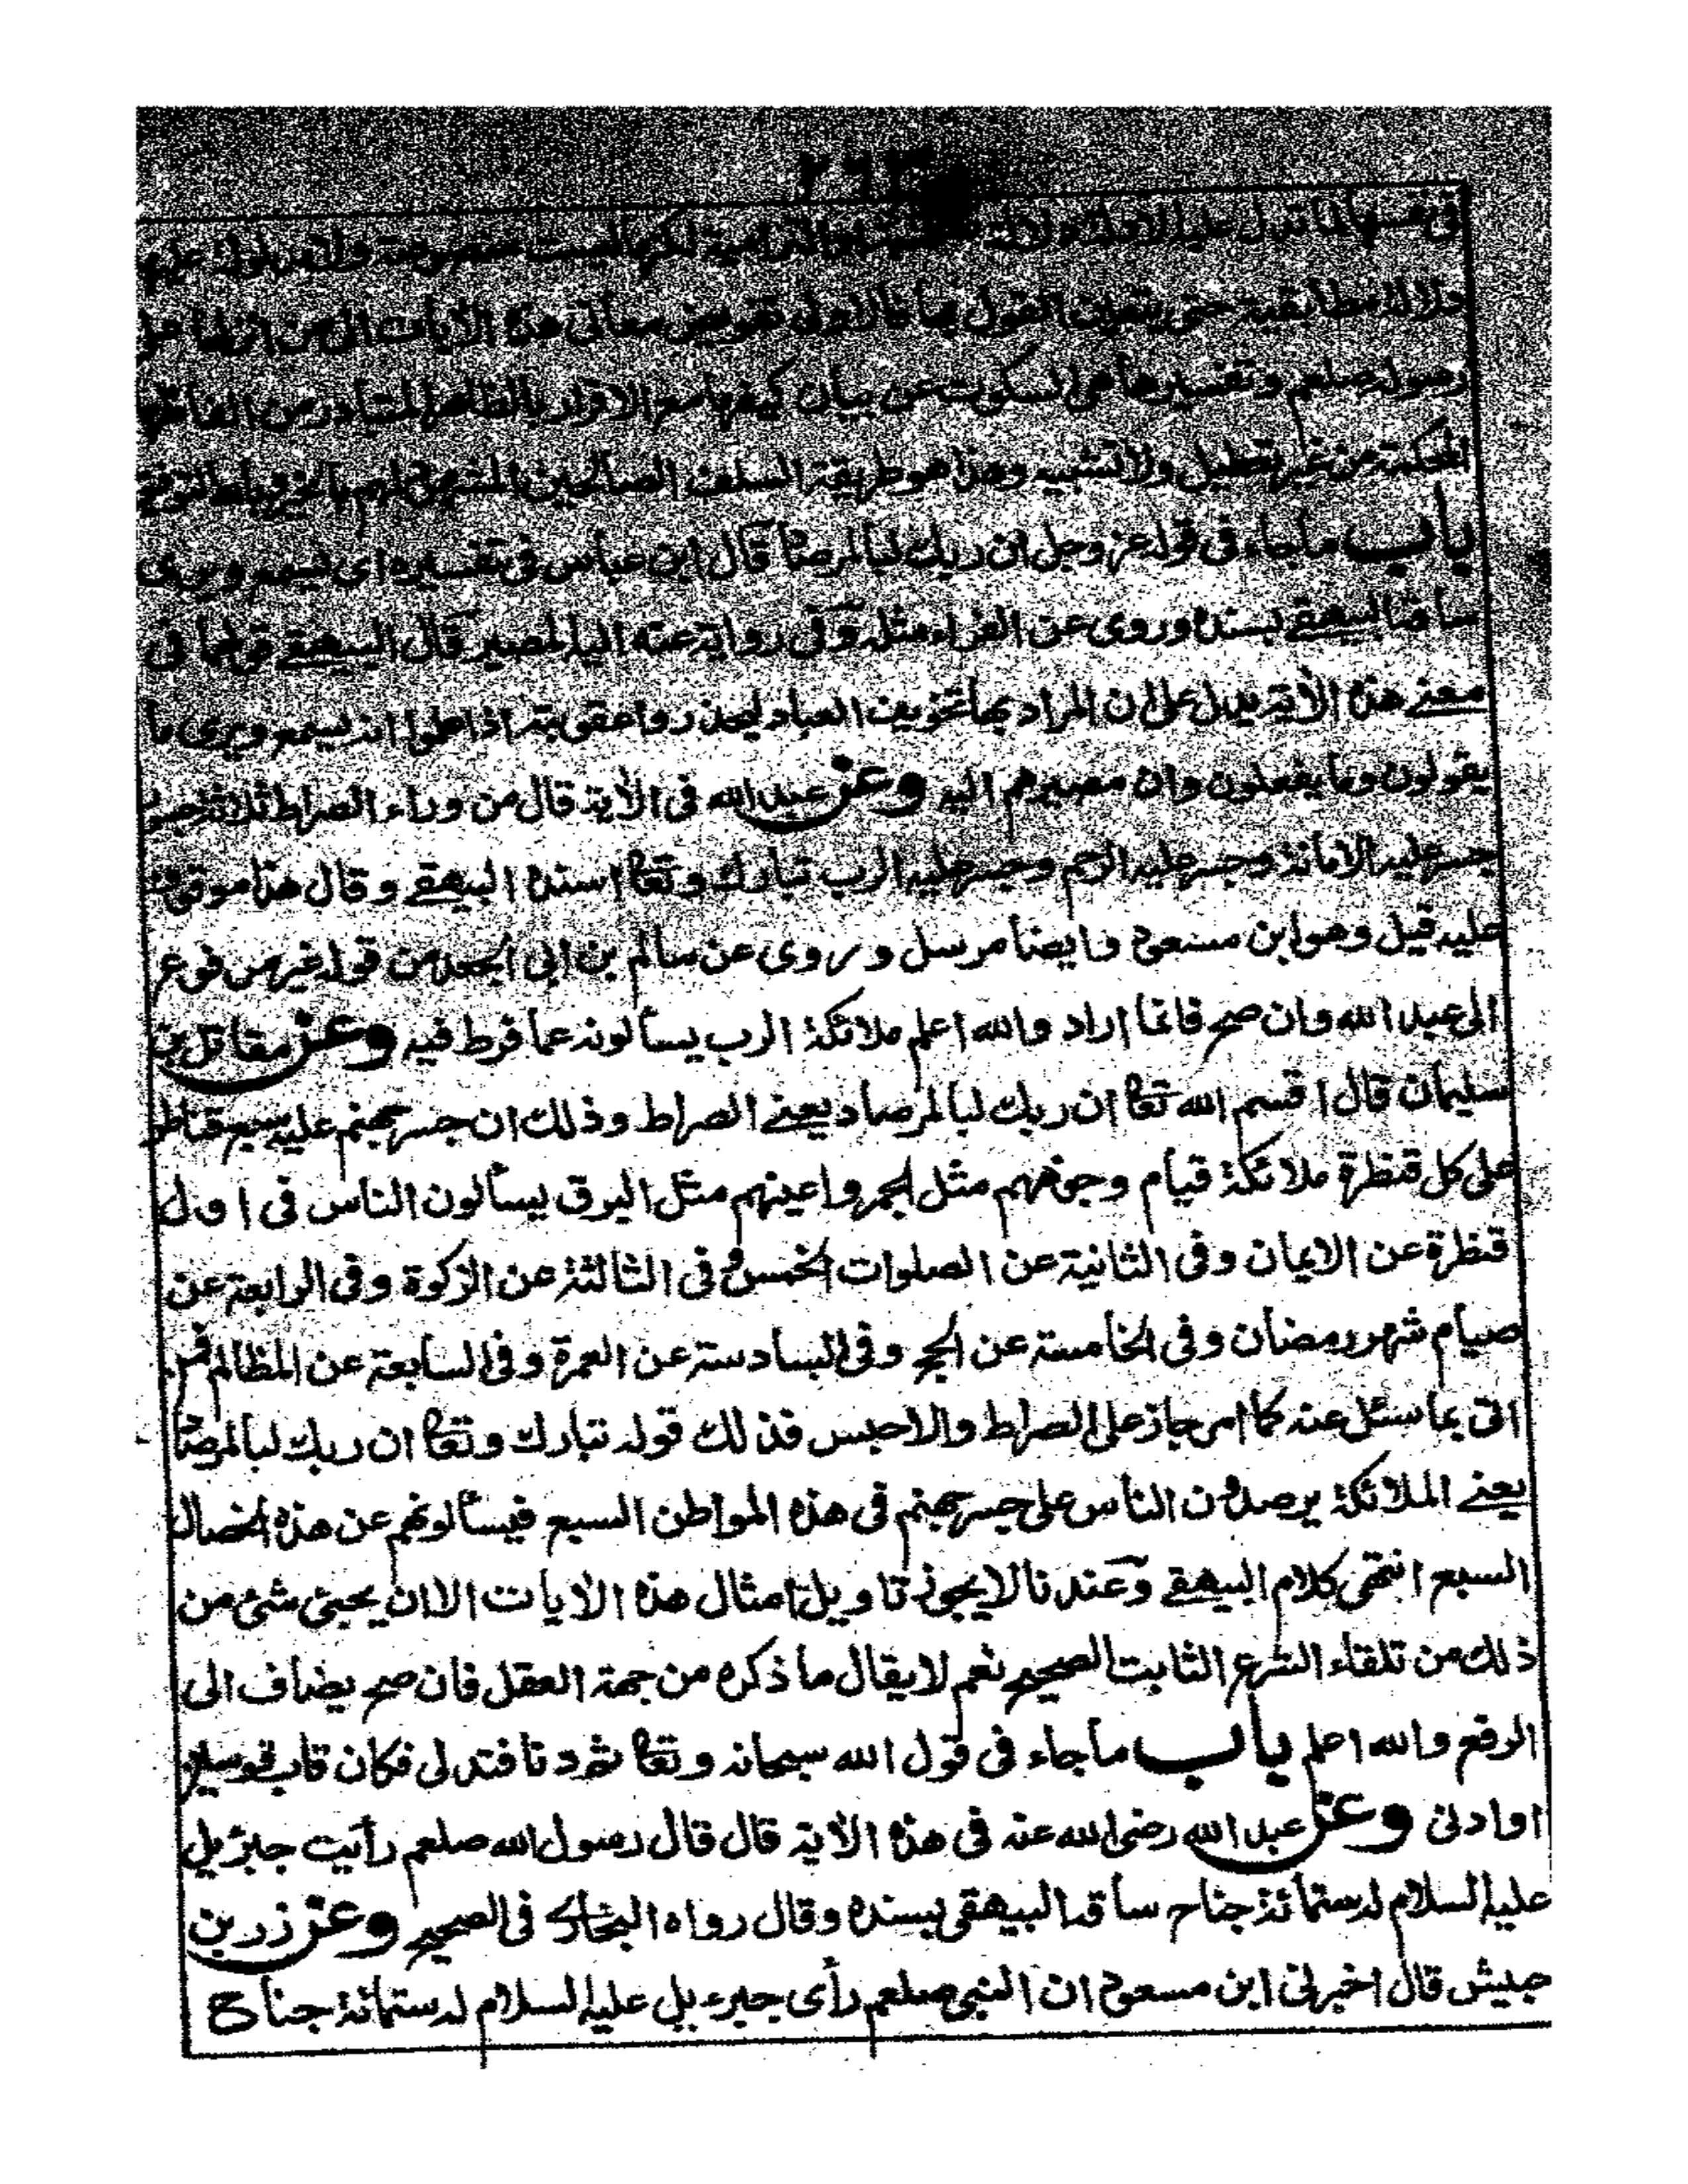 دلالة مطابقية حتى يتعين القول بها فالاولى تفويض معانى هذه الأيات الى من انزلها على
رسوله صلعم وتفسيرها هى السكوت عن بيان كيفها مع الاقرار بالظاهر المتبادر من الفاظها
المحكمة من غير تعطيل ولا تشبيه وهذا هو طريقة السلف الصالحين المشهود لهم بالخير
باب ماجاء فى قوله عز وجل ان ربك لبالمرصاد قال ابن عباس فى تفسيره اى يسمع ويرى
ساقه البيهقے بسنده وروى عن الفراء مثله وفى رواية عنه اليه المصير قال البيهقے قولهما فى
معنے هذه الأية يدل على ان المراد بها تخويف العباد ليحذروا عقوبته اذا علموا انه يسمع ويرى ما
يقولون وما يفعلون وان مصيرهم اليه وعن عبد الله فى الأية قال من وراء الصراط ثلاثة جسور
جسر عليه الامانة وجسر عليه الرحم وجسر عليه الرب تبارك وتعا اسنده البيهقے وقال هذا موقوف
عليه قيل وهو ابن مسعود وايضا مرسل وروى عن سالم بن ابى الجعد من قوله غير مرفوع
الى عبد الله وان صح فانما اراد والله اعلم ملائكة الرب يسألونه عما فرط فيه وعن مقاتل بن
سليمان قال اقسم الله تعا ان ربك لبالمرصاد يعنے الصراط وذلك ان جسر جهنم عليه سبع قناطر
على كل قنظرة ملائكة قيام وجوههم مثل الجمر واعينهم مثل البرق يسألون الناس فى اول
قنظرة عن الايمان وفى الثانية عن الصلوات الخمس وفى الثالثة عن الزكوة وفى الرابعة عن
صيام شهر رمضان وفى الخامسة عن الحج وفى السادسة عن العمرة وفى السابعة عن المظالم فمن
اتى بما سئل عنه كما امر جاز على الصراط والا حبس فذلك قوله تبارك وتعا ان ربك لبالمرصاد
يعنے الملائكة يرصدون الناس على جسر جهنم فى هذه المواطن السبع فيسألونهم عن هذه الخصال
السبع انتهى كلام البيهقے وعندنا لا يجوز تاويل امثال هذه الأيات الا ان يحيئ شئ من
ذلك من تلقاء الشرع الثابت الصحيح نعم لا يقال ما ذكره من جهة العقل فان صح يضاف الى
الرفع والله اعلم باب ماجاء فى قول الله سبحانه وتعا ثم دنا فتدلى فكان قاب قوسين
او ادنى وعن عبد الله رضى الله عنه فى هذه الأية قال قال رسول الله صلعم رأيت جبرئيل
عليه السلام له ستمائة جناح ساقه البيهقى بسنده وقال رواه البخارى فى الصحيح وعن زر بن
حبيش قال اخبرنى ابن مسعود ان النبى صلعم رأى جبرءيل عليه السلام له ستمائة جناح